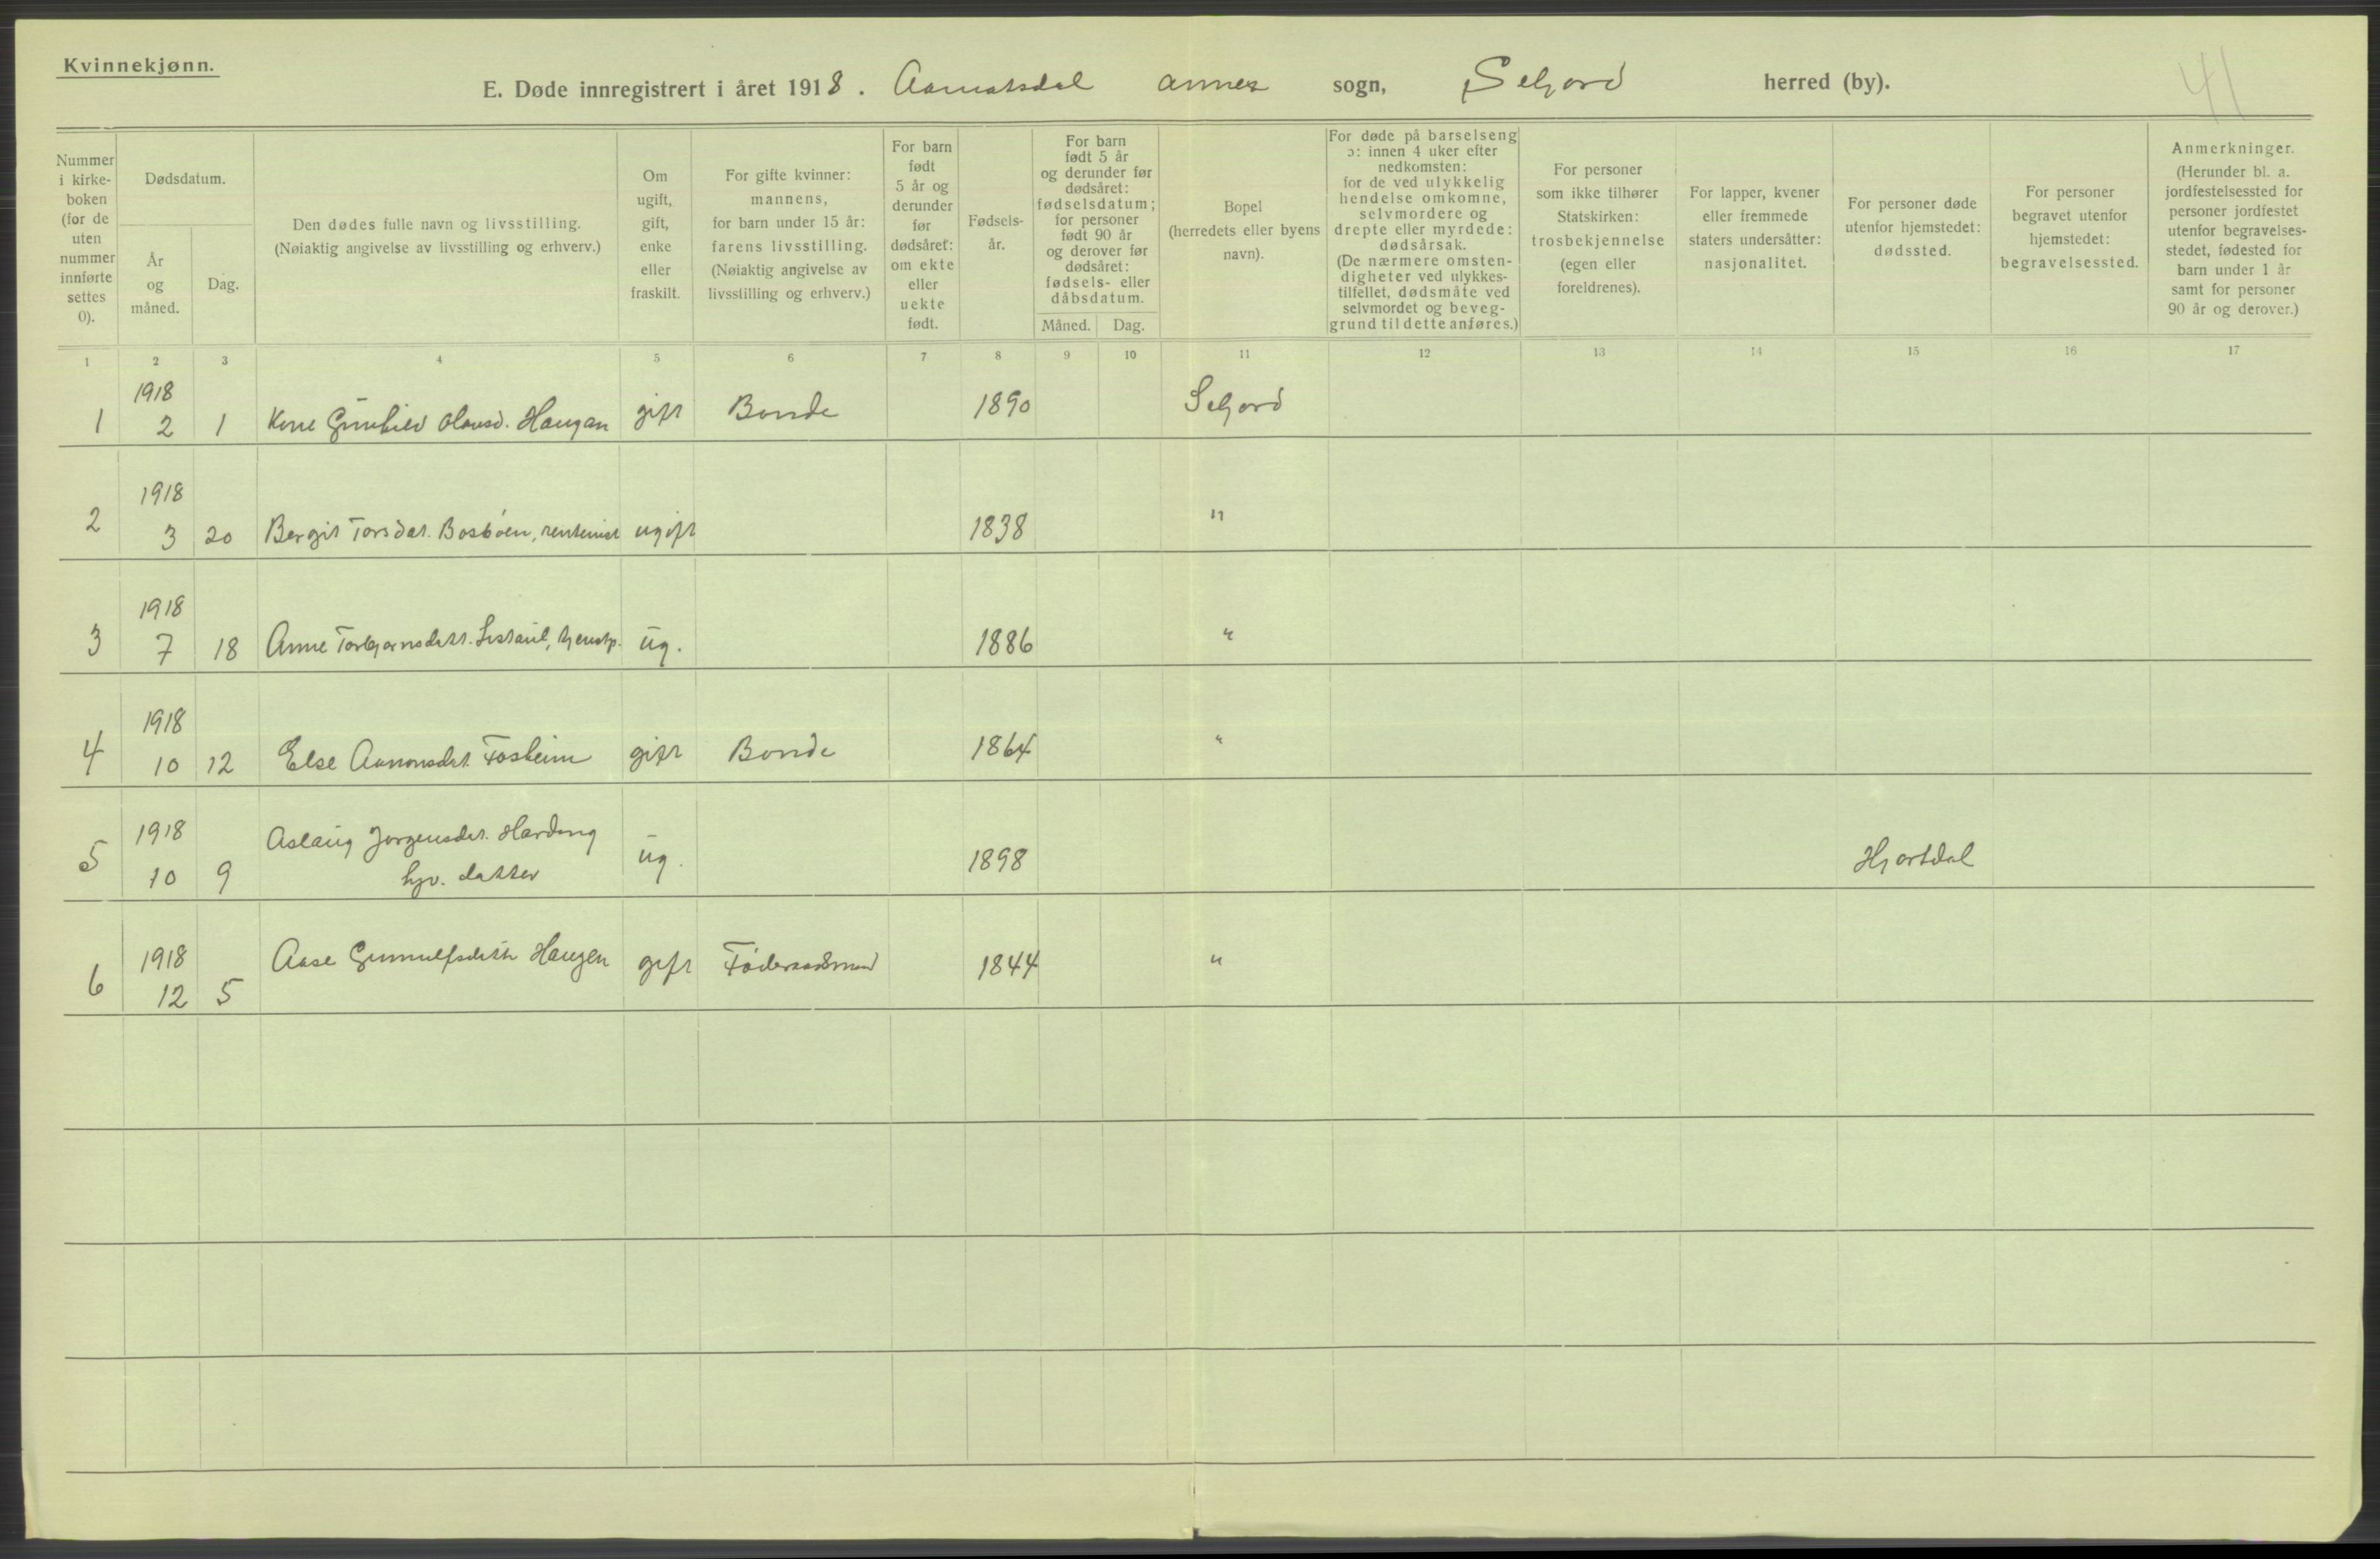 Kvinnekjønn.
E. Døde innregistrert i året 1918. Aamotsdal annex sogn, Seljord herred (by).
41
Nummer i kirke-boken (for de uten nummer innførte settes 0).
Dødsdatum.
År og måned.
Dag.
Den dødes fulle navn og livsstilling.
(Nøiaktig angivelse av livsstilling og erhverv.)
Om ugift, gift, enke eller fraskilt.
For gifte kvinner: mannens, for barn under 15 år: farens livsstilling. (Nøiaktig angivelse av livsstilling og erhverv.)
For barn født 5 år og derunder før dødsåret: om ekte eller uekte født.
Fødsels-år.
For barn født 5 år og derunder før dødsåret: fødselsdatum; for personer født 90 år og derover før dødsåret: fødsels- eller dåbsdatum.
Måned. Dag.
Bopel (herredets eller byens navn).
For døde på barselseng ɔ: innen 4 uker efter nedkomsten: for de ved ulykkelig hendelse omkomne, selvmordere og drepte eller myrdede: dødsårsak. (De nærmere omsten-digheter ved ulykkes-tilfellet, dødsmåte ved selvmordet og beveg-grund til dette anføres.)
For personer som ikke tilhører Statskirken: trosbekjennelse (egen eller foreldrenes).
For lapper, kvener eller fremmede staters undersåtter: nasjonalitet.
For personer døde utenfor hjemstedet: dødssted.
For personer begravet utenfor hjemstedet: begravelsessted.
Anmerkninger. (Herunder bl. a. jordfestelsessted for personer jordfestet utenfor begravelses-stedet, fødested for barn under 1 år samt for personer 90 år og derover.)
1 2 3 4 5 6 7 8 9 10 11 12 13 14 15 16 17
1918
1 2 1 Kone Gunhild Olavsd. Haugan gift Bonde 1890 Seljord
1918
2 3 20 Bergit Torsdat. Bosbøen, rentenist ugift 1838 "
1918
3 7 18 Anne Torbjørnsdatt. tjenestp. ug. 1886 "
1918
4 10 12 Else Aanonsdat. Fosheim gift Bonde 1864 "
1918 Aslaug Jørgensdat. Harding
5 10 9 hjv. datter ug. 1898 Hjartdal
1918 Aase Gunnulfsdatt Haugen gift Føderaadsmand 1844 "
6 12 5